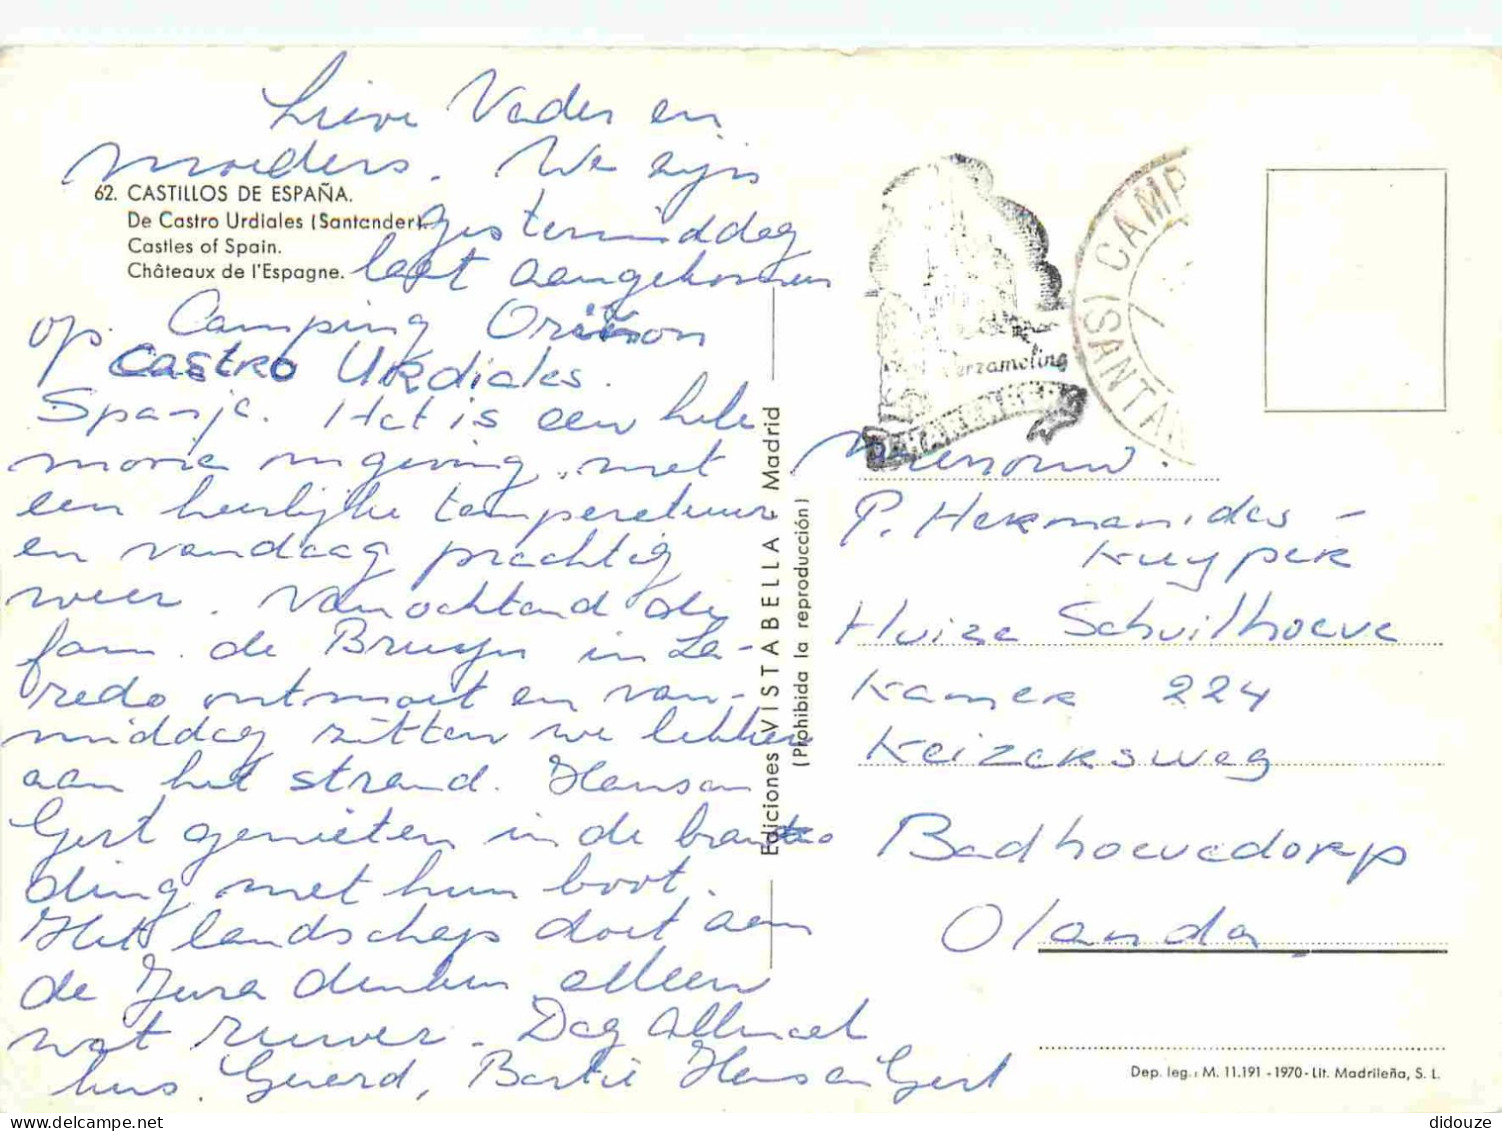 Lieve Vader en
moeders. We zijn
62. CASTILLOS DE ESPAÑA.
De Castro Urdiales (Santander).
Castles of Spain.
Châteaux de l'Espagne.
gistermiddag
laat aangekomen
op Camping Oriñon
Castro Urdiales
Spanje. Het is een hele
mooie omgeving met
een heerlijke temperatuur
en vandaag prachtig
weer. Vanochtend de
fam. de Bruyn in La-
redo ontmoet en van-
middag zitten we lekker
aan het strand. Hans en
Gert genieten in de bran
ding met hun boot.
Het landschap doet aan
de Jura denken alleen
wat ruwer. Dag allemaal
kus. Gerard, Bartie Hans en Gert
Ediciones VISTABELLA - Madrid
(Prohibida la reproducción)
Verzameling
(S) CAMP
(SANTAN
Mevrouw.
P. Hermanides -
Kuyper
Huize Schuilhoeve
Kamer 224
Keizersweg
Badhoevedorp
Olanda
Dep. leg.: M. 11.191 - 1970 - Lit. Madrileña, S. L.
didouze